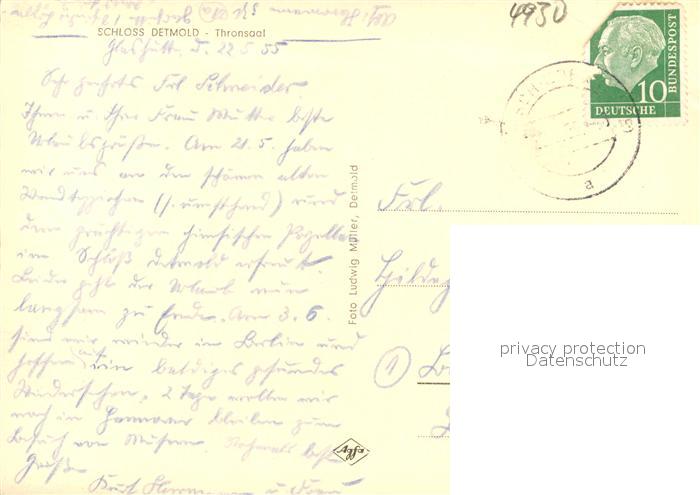 4930
SCHLOSS DETMOLD - Thronsaal
Glashütt, d. 22.5.55
Sehr geehrtes Frl. Schneider
Ihnen u. Ihrer Frau Mutter beste
Urlaubsgrüße. Am 21.5. haben
wir uns an den schönen alten
Wandteppichen (s. umstehend) und
dem prächtigen chinesischen Porzellan
im Schloß Detmold erfreut.
Leider geht der Urlaub nun
langsam zu Ende. Am 3.6.
sind wir wieder in Berlin und
hoffen auf ein baldiges gesundes
Wiedersehen. 2 Tage wollen wir
noch in Hannover bleiben zum
Besuch von Museen. Nochmals beste
Grüße
Kurt u. Frau
Foto Ludwig Müller, Detmold
Agfa
DEUTSCHE
BUNDESPOST
10
a
Frl.
(1)
privacy protection
Datenschutz